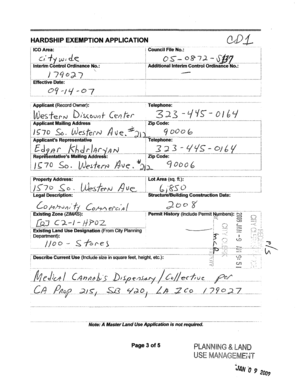 CD1
HARDSHIP EXEMPTION APPLICATION
ICO Area: Council File No.:
citywide 05-0872-S
Interim Control Ordinance No.: Additional Interim Control Ordinance No.:
179027 —
Effective Date:
09-14-07
Applicant (Record Owner): Telephone:
Western Discount Center 323-445-0164
Applicant Mailing Address Zip Code:
1570 So. Western Ave. #212 90006
Applicant's Representative Telephone:
Edgar Khdrlaryan 323-445-0164
Representative's Mailing Address: Zip Code:
1570 So. Western Ave. #212 90006
Property Address: Lot Area (sq. ft.):
1570 So. Western Ave 6,850
Legal Description: Structure/Building Construction Date:
Community Commercial 2008
Existing Zone (ZIMAS): Permit History (include Permit Numbers):
C2-1-HPOZ
Existing Land Use Designation (From City Planning
Department):
1100 - Stores
Describe Current Use (Include size in square feet, height, etc.):
Medical Cannabis Dispensary / Collective per
CA Prop 215, SB 420, LA ICO 179027
Note: A Master Land Use Application is not required.
Page 3 of 5
PLANNING & LAND
USE MANAGEMENT
JAN 09 2009